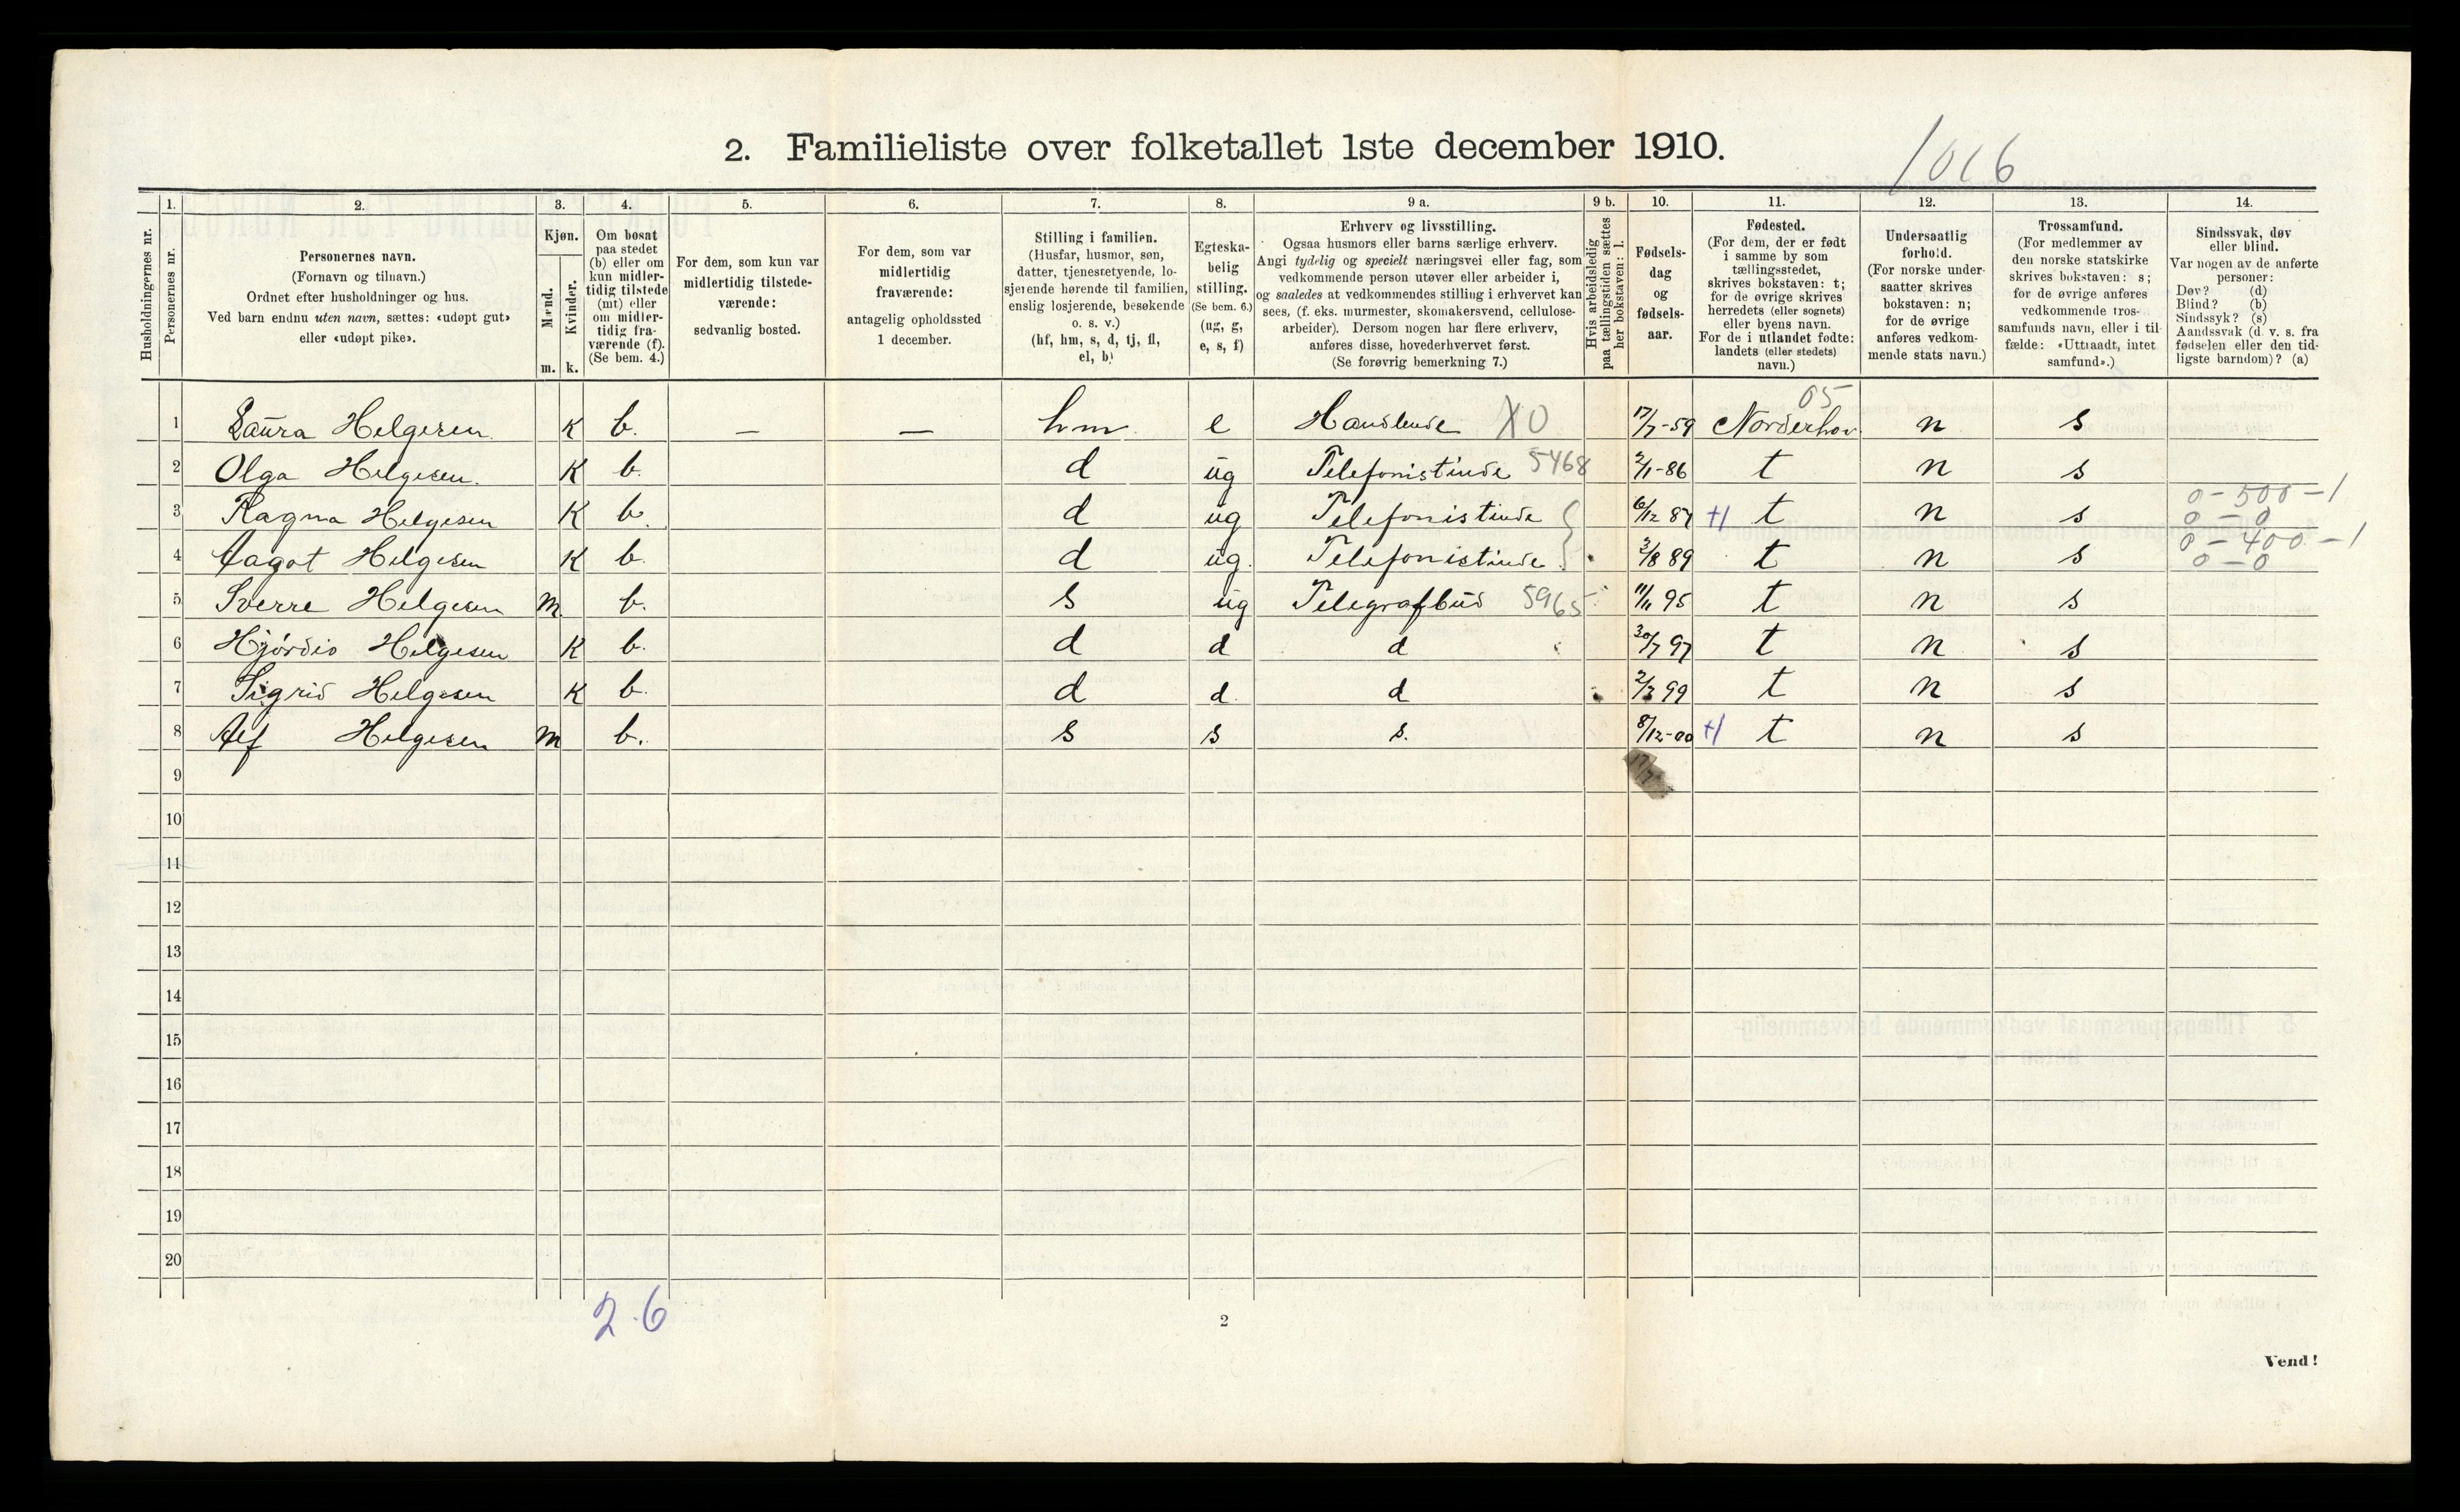 2. Familieliste over folketallet 1ste december 1910.
1016
Husholdningernes nr.
1. Personernes nr.
2. Personernes navn.
(Fornavn og tilnavn.)
Ordnet efter husholdninger og hus.
Ved barn endnu uten navn, sættes: «udøpt gut»
eller «udøpt pike».
3. Kjøn.
Mænd. m.
Kvinder. k.
4. Om bosat
paa stedet
(b) eller om
kun midler-
tidig tilstede
(mt) eller
om midler-
tidig fra-
værende (f).
(Se bem. 4.)
5. For dem, som kun var
midlertidig tilstede-
værende:
sedvanlig bosted.
6. For dem, som var
midlertidig
fraværende:
antagelig opholdssted
1 december.
7. Stilling i familien.
(Husfar, husmor, søn,
datter, tjenestetyende, lo-
sjerende hørende til familien,
enslig losjerende, besøkende
o. s. v.)
(hf, hm, s, d, tj, fl,
el, b)
8. Egteska-
belig
stilling.
(Se bem. 6.)
(ug, g,
e, s, f)
9 a. Erhverv og livsstilling.
Ogsaa husmors eller barns særlige erhverv.
Angi tydelig og specielt næringsvei eller fag, som
vedkommende person utøver eller arbeider i,
og saaledes at vedkommendes stilling i erhvervet kan
sees, (f. eks. murmester, skomakersvend, cellulose-
arbeider). Dersom nogen har flere erhverv,
anføres disse, hovederhvervet først.
(Se forøvrig bemerkning 7.)
9 b. Hvis arbeidsledig
paa tællingstiden sættes
her bokstaven: l.
10. Fødsels-
dag
og
fødsels-
aar.
11. Fødested.
(For dem, der er født
i samme by som
tællingsstedet,
skrives bokstaven: t;
for de øvrige skrives
herredets (eller sognets)
eller byens navn.
For de i utlandet fødte:
landets (eller stedets)
navn.)
12. Undersaatlig
forhold.
(For norske under-
saatter skrives
bokstaven: n;
for de øvrige
anføres vedkom-
mende stats navn.)
13. Trossamfund.
(For medlemmer av
den norske statskirke
skrives bokstaven: s;
for de øvrige anføres
vedkommende tros-
samfunds navn, eller i til-
fælde: «Uttraadt, intet
samfund».)
14. Sindssvak, døv
eller blind.
Var nogen av de anførte
personer:
Døv? (d)
Blind? (b)
Sindssyk? (s)
Aandssvak (d. v. s. fra
fødselen eller den tid-
ligste barndom)? (a)
05
1 Laura Helgesen. K b. — — hm e Handlende X0 17/7-59 Norderhov n s
2 Olga Helgesen. K b. d ug Telefonistinde 5468 2/1-86 t n s
3 Ragna Helgesen K b. d ug Telefonistinde 6/12 87 +1 t n s 0-500-1 0-0
4 Aagot Helgesen K b. d ug. Telefonistinde 3/8 89 t n s 0-400-1 0-0
5 Sverre Helgesen m. b. s ug Telegrafbud 5965 11/11 95 t n s
6 Hjördis Helgesen K b. d d d 30/7 97 t n s
7 Sigrid Helgesen K b. d d. d 2/3 99 t n s
8 Alf Helgesen m b. s s s. 8/12-00 +1 t n s
9
10
11
12
13
14
15
16
17
18
19
20
2.6
2
Vend!